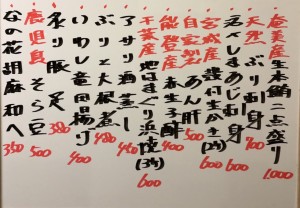 奄美産生本鮪二点盛り 1,000
天然ぶり刺身 900
活〆しまあじ刺身 600
宮城産殻付生かき(2ヶ) 600
自家製あん肝 700
能登産赤生子酢 400
千葉産地はまぐり浜焼(3ヶ) 600
アサリ酒蒸し 480
ぶりと大根煮 480
いわし竜田揚げ 400
炙り豚足 380
鹿児島産そら豆 500
なの花胡麻和へ 350